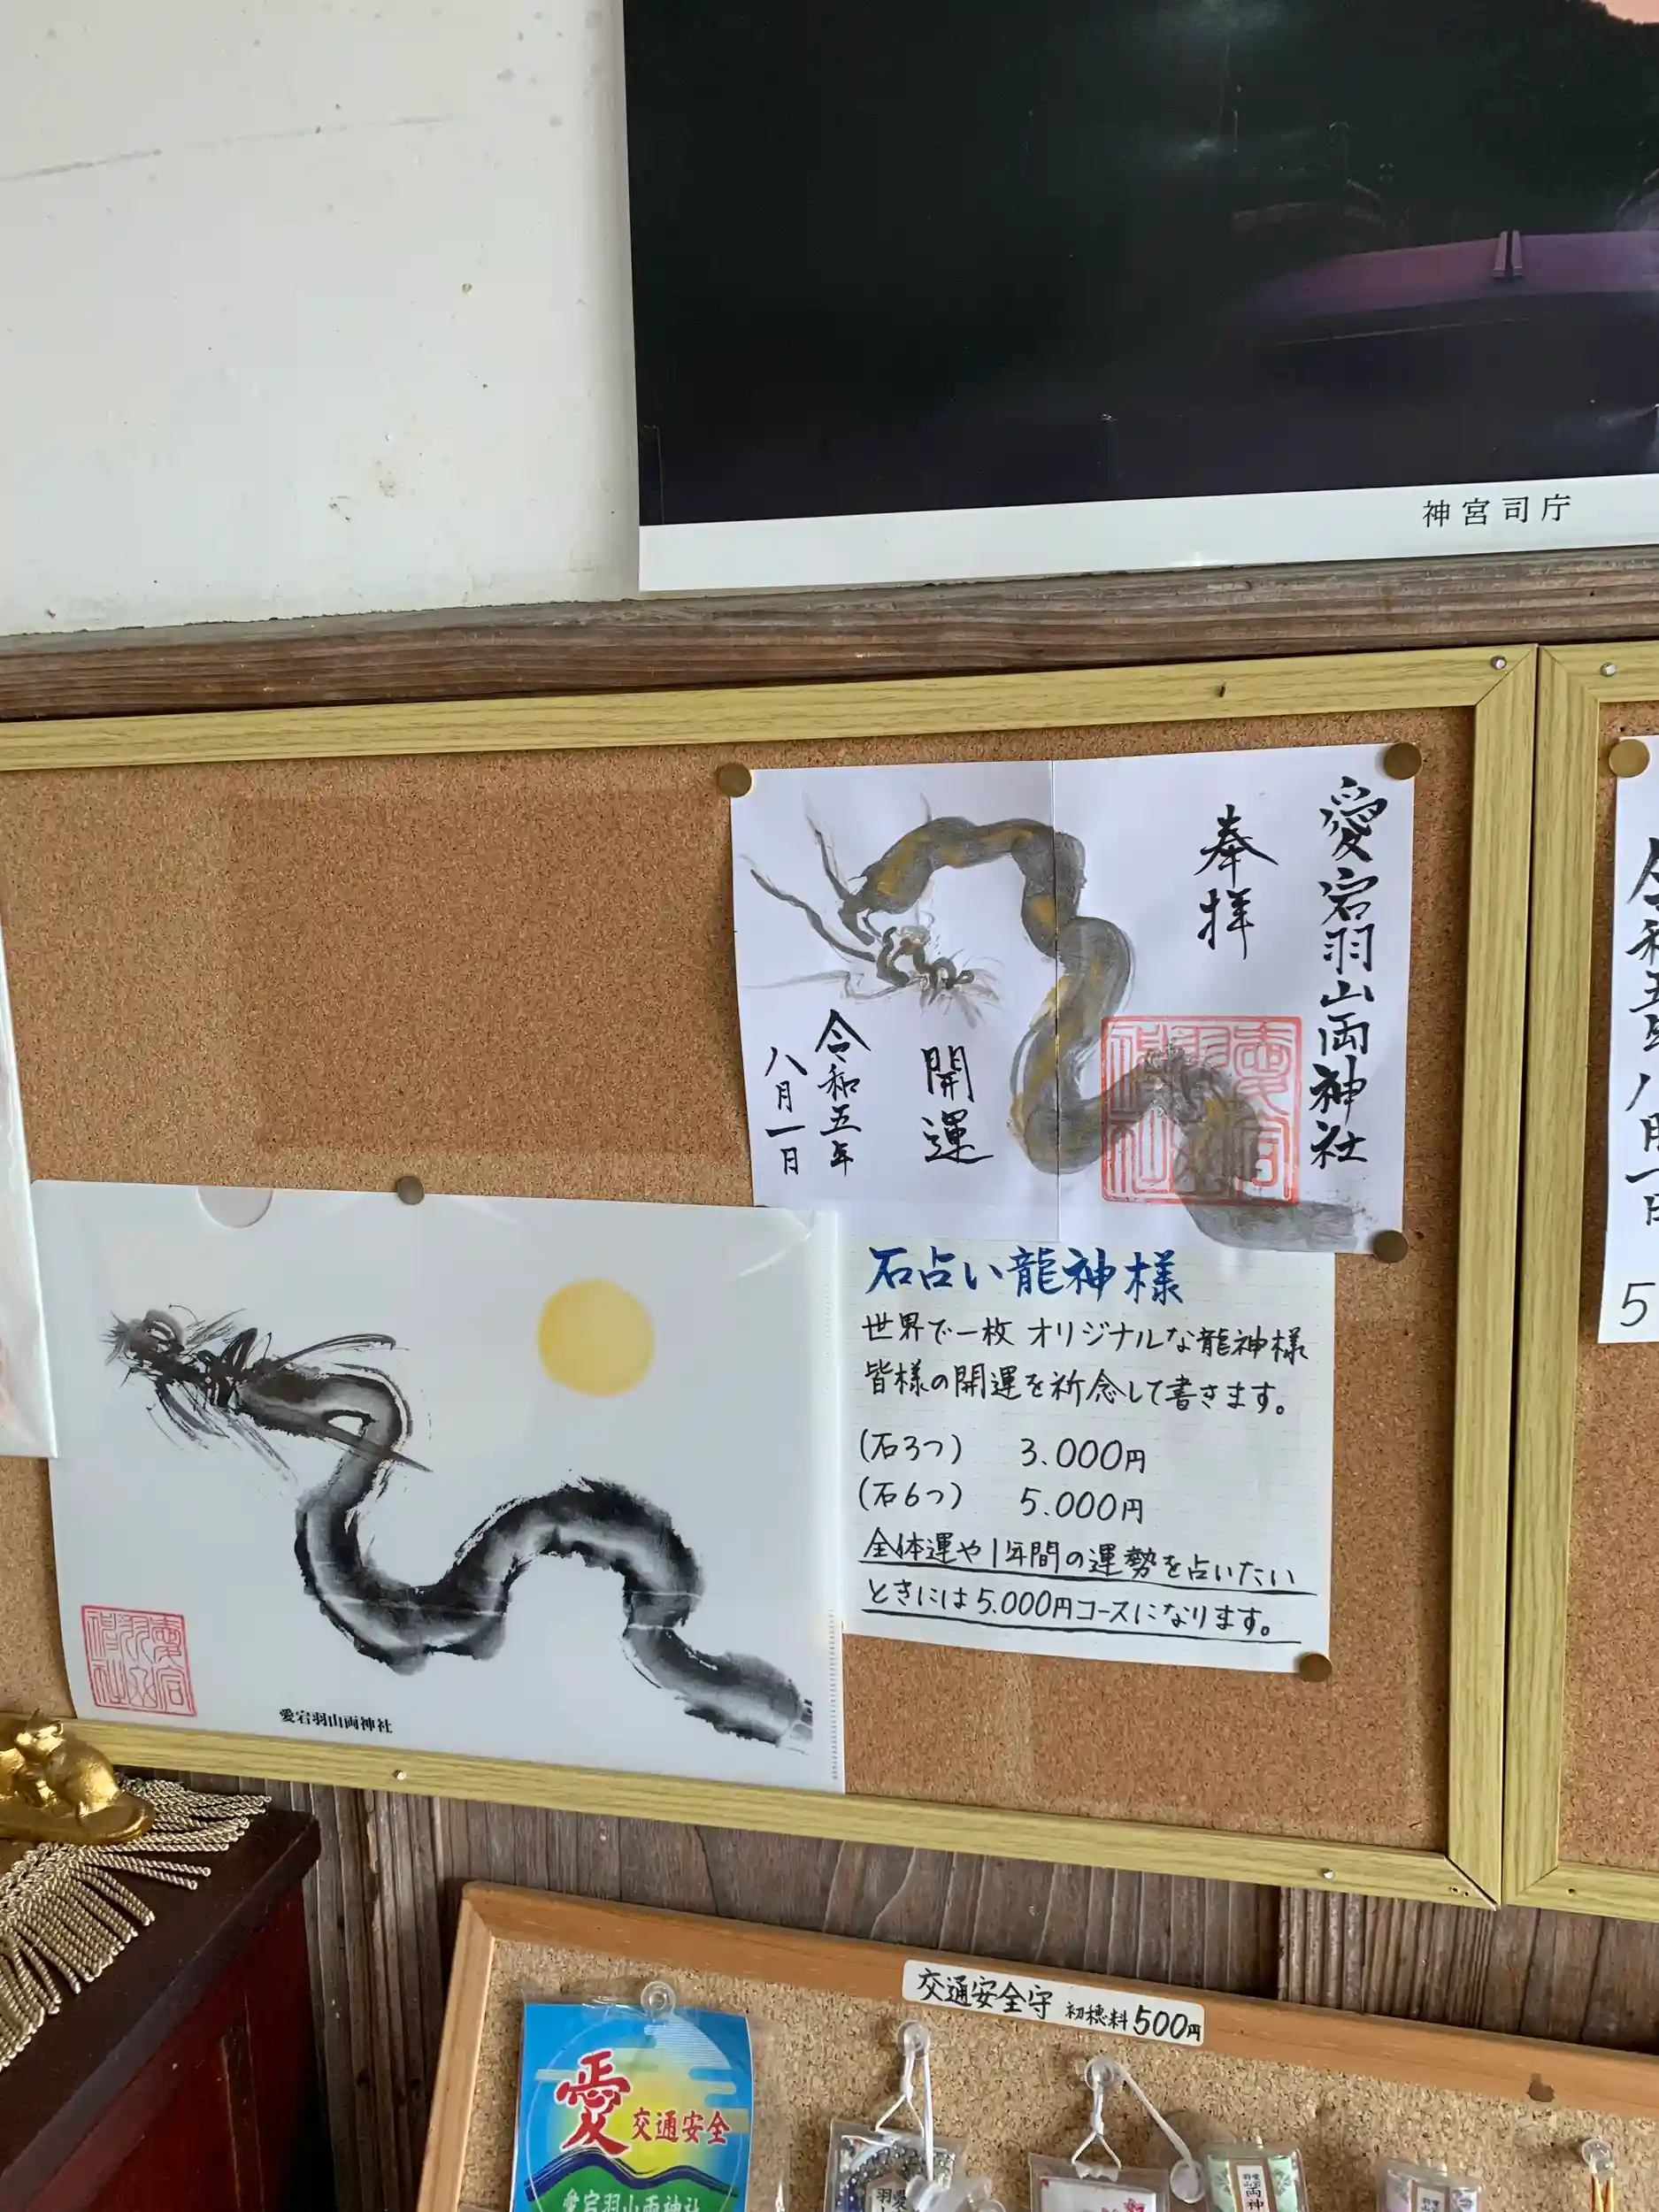 神宮司庁
愛宕羽山両神社
奉拝
開運
令和五年
八月一日
石占い龍神様
世界で一枚 オリジナルな龍神様
皆様の開運を祈念して書きます。
(石3つ) 3.000円
(石6つ) 5.000円
全体運や1年間の運勢を占いたい
ときには5.000円コースになります。
愛宕羽山両神社
令和五年八月一日
5
交通安全守 初穂料500円
愛
交通安全
愛宕羽山両神社